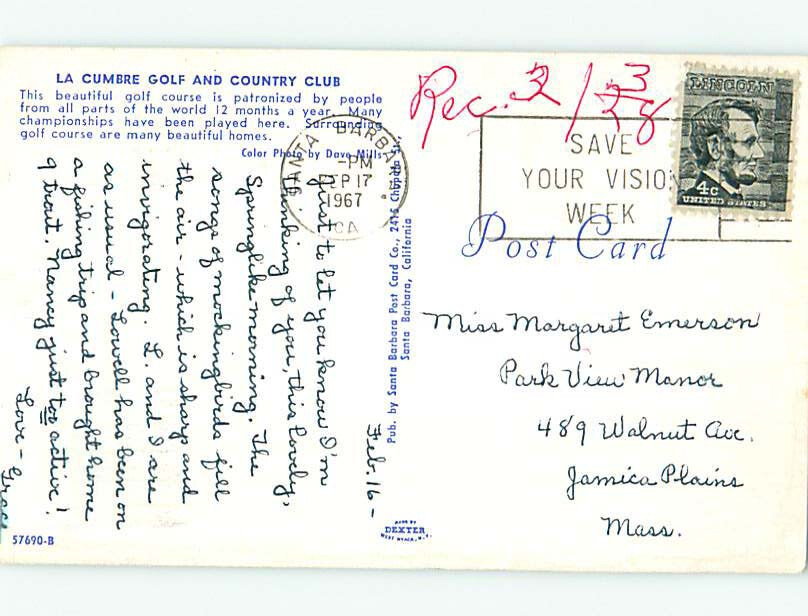 LA CUMBRE GOLF AND COUNTRY CLUB
This beautiful golf course is patronized by people
from all parts of the world 12 months a year. Many
championships have been played here. Surrounding
golf course are many beautiful homes.
Color Photo by Dave Mills
Feb. 16 -
Just to let you know I'm
thinking of you, this lovely,
Springlike morning. The
songs of mockingbirds fill
the air - which is sharp and
invigorating. L. and I are
as usual - Lowell has been on
a fishing trip and brought home
9 trout. Nancy just too active!
Love - Grace
57690-B
Pub. by Santa Barbara Post Card Co., 2415 Chapala St.,
Santa Barbara, California
MADE BY
DEXTER
WEST NYACK, N.Y.
SANTA BARBARA
-PM
FEB 17
1967
CA
SAVE
YOUR VISION
WEEK
Rec. 2/28
3
LINCOLN
4c
UNITED STATES
Post Card
Miss Margaret Emerson
Park View Manor
489 Walnut Ave.
Jamica Plains
Mass.